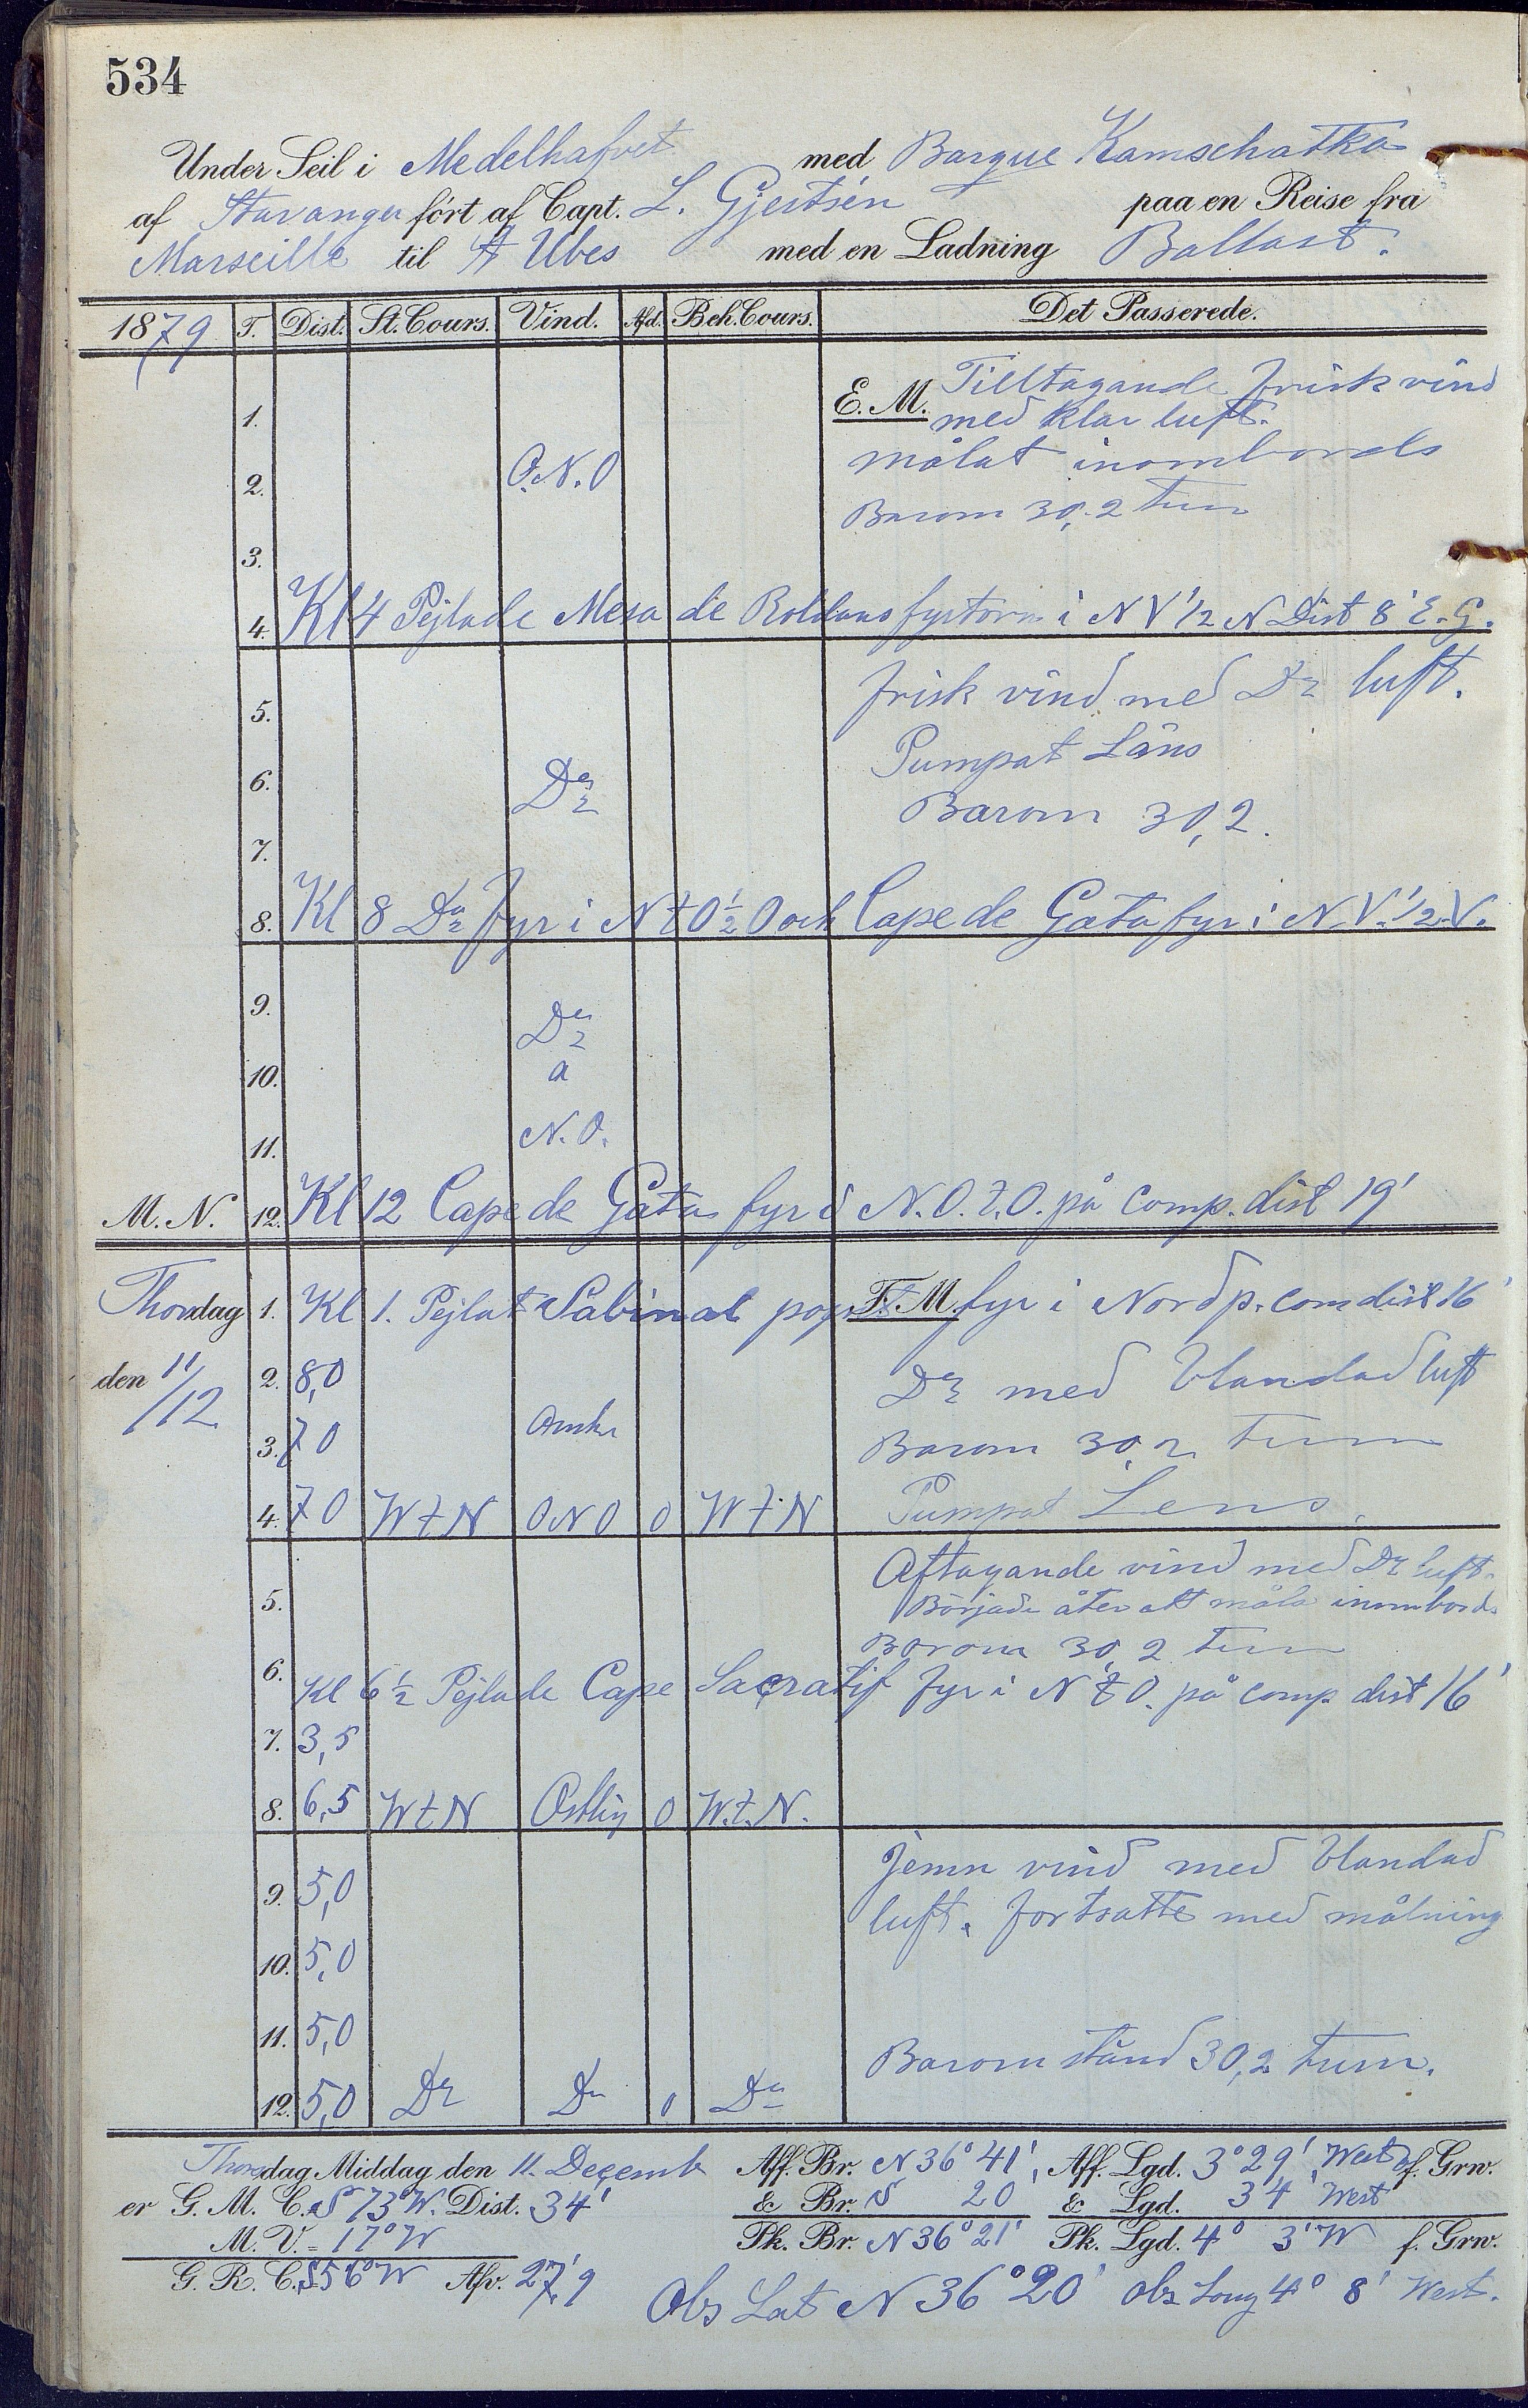 534
Under Seil i Medelhafvet med Barque Kamschatka
af Stavanger fört af Capt. L. Gjertsén paa en Reise fra
Marseille til St Ubes med en Ladning Ballast.
1879 T. Dist. St. Cours. Vind. Afd. Beh. Cours. Det Passerede.
E. M. Tilltagande frisk vind
1. med klar luft.
målat inombords
2. O.N.O
Barom 30,2 tum
3.
4. Kl 4 Pejlade Mesa de Roldans fyrtorn i N V 1/2 N Dist 8' E. G.
frisk vind med Do luft.
5.
Pumpat Läns
6. Do
Barom 30,2.
7.
8. Kl 8 Do fyr i N t O 1/2 O och Cape de Gata fyr i N. V. 1/2 V.
9. Do
10. a
11. N. O.
M. N. 12. Kl 12 Cape de Gata fyr i N. O. t. O. på comp. dist 19'
Thorsdag 1. Kl 1. Pejlat Sabinal F. M. fyr i Nord p. com dist 16'
den 11/12 2. 8,0 Do med blandad luft
3. 7 0 Barom 30,2 tum
4. 7 0 W t N O N O 0 W t N Pumpat Lens.
Aftagande vind med Do luft.
5. Började åter att måla inombords
Barom 30,2 tum
6. Kl 6 1/2 Pejlade Cape Sacratif fyr i N t O. på comp dist 16'
7. 3,5
8. 6,5 W t N Ostlig 0 W. t. N.
Jemn vind med blandad
9. 5,0 luft. fortsatte med målning
10. 5,0
11. 5,0
Barom stånd 30,2 tum.
12. 5,0 Do Do 0 Do
Thorsdag Middag den 11. Decemb Aff. Br. N 36° 41', Aff. Lgd. 3° 29' West f. Grw.
er G. M. C. S 73° W. Dist. 34' & Br. S 20 & Lgd. 34' West
M. V. = 17° W Pk. Br. N 36° 21' Pk. Lgd. 4° 3' W f. Grw.
G. R. C. S 56° W Afv. 27,9
Obs Lat N 36° 20' obs Long 4° 8' West.